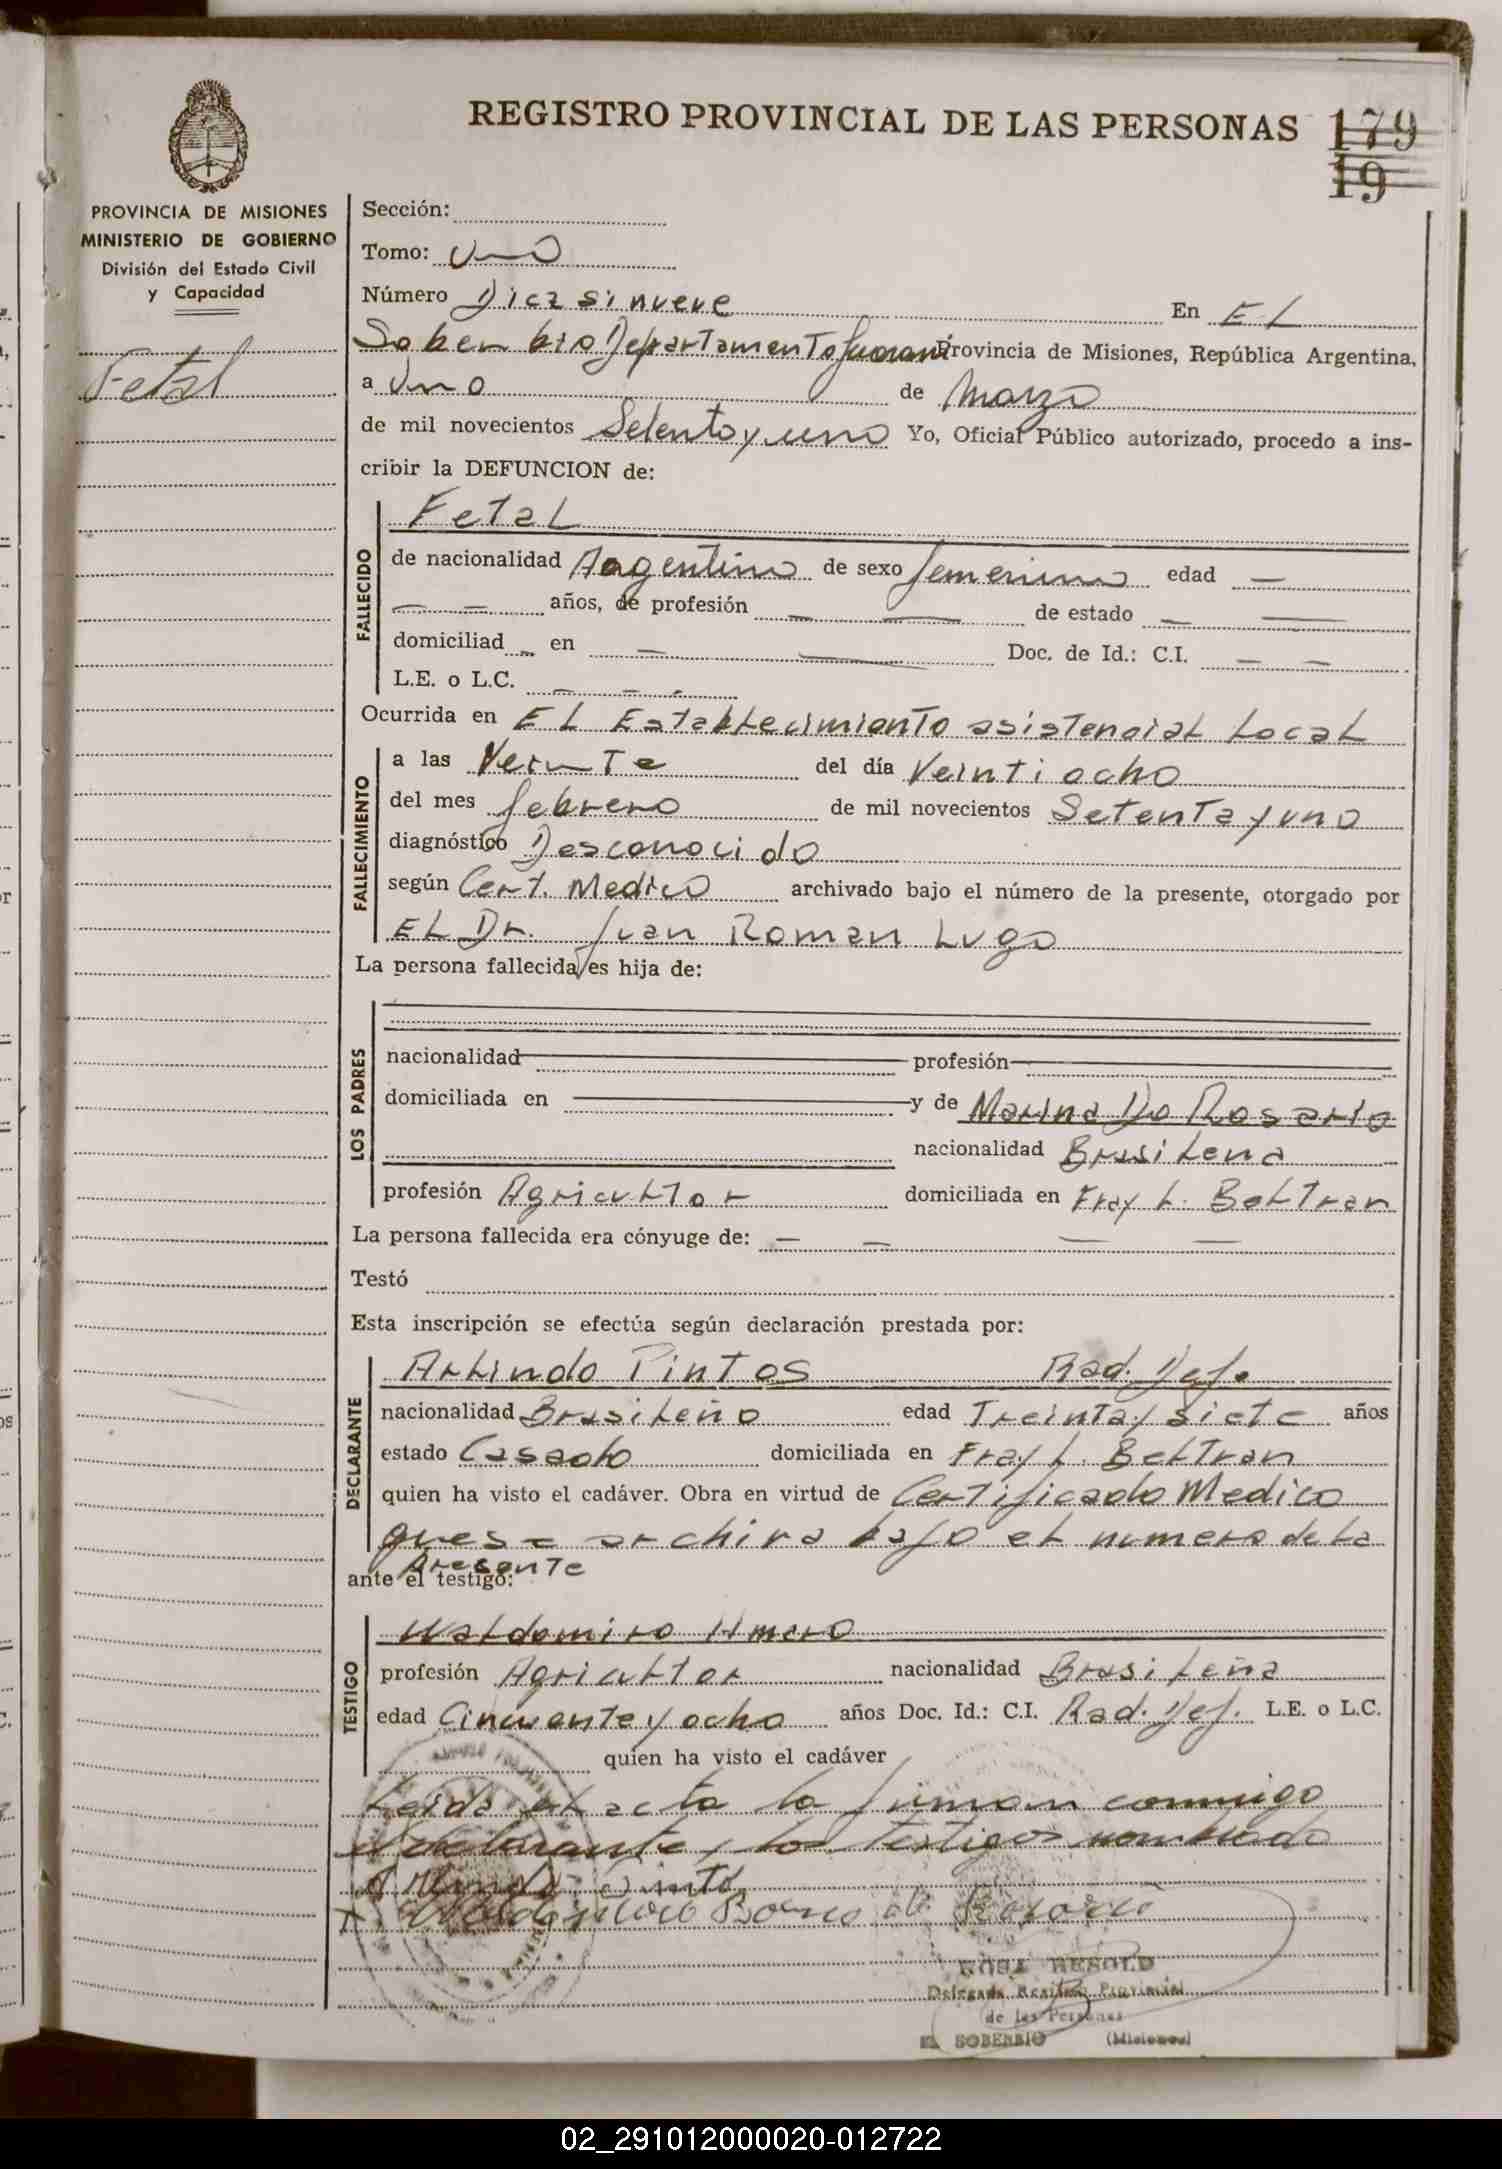 REGISTRO PROVINCIAL DE LAS PERSONAS 179
19
PROVINCIA DE MISIONES
MINISTERIO DE GOBIERNO
División del Estado Civil
y Capacidad
Fetal
Sección:
Tomo: Uno
Número Diez si nueve En EL
Soberbio Departamento Guarani Provincia de Misiones, República Argentina,
a Uno de Marzo
de mil novecientos Setenta y uno Yo, Oficial Público autorizado, procedo a ins-
cribir la DEFUNCION de:
FALLECIDO
Fetal
de nacionalidad Argentina de sexo femenino edad —
— — años, de profesión — — de estado — —
domiciliad – en — — Doc. de Id.: C.I. — —
L.E. o L.C. — — –
Ocurrida en EL Establecimiento asistencial Local
FALLECIMIENTO
a las Veinte del día Veinti ocho
del mes febrero de mil novecientos Setenta y uno
diagnóstico Desconocido
según Cert. Medico archivado bajo el número de la presente, otorgado por
EL Dr. Juan Roman Lugo
La persona fallecida/es hija de:
LOS PADRES
nacionalidad profesión
domiciliada en y de Marina Do Rosario
nacionalidad Brasilena
profesión Agricultor domiciliada en Fray L. Beltran
La persona fallecida era cónyuge de: — — — —
Testó
Esta inscripción se efectúa según declaración prestada por:
DECLARANTE
Arlindo Pintos Rad. Def.
nacionalidad Brasileño edad Treinta y siete años
estado Casado domiciliada en Fray L. Beltran
quien ha visto el cadáver. Obra en virtud de Certificado Medico
que se archiva bajo el numero de la
presente
ante el testigo:
TESTIGO
Waldomiro
profesión Agricultor nacionalidad Brasileña
edad Cincuenta y ocho años Doc. Id.: C.I. Rad. Def. L.E. o L.C.
quien ha visto el cadáver
Leida el acta la firman conmigo
el declarante y los testigos nombrado
Arlindo Pinto
ROSA RESOLD
Delegada Registro Provincial
de las Personas
EL SOBERBIO (Misiones)
02_291012000020-012722